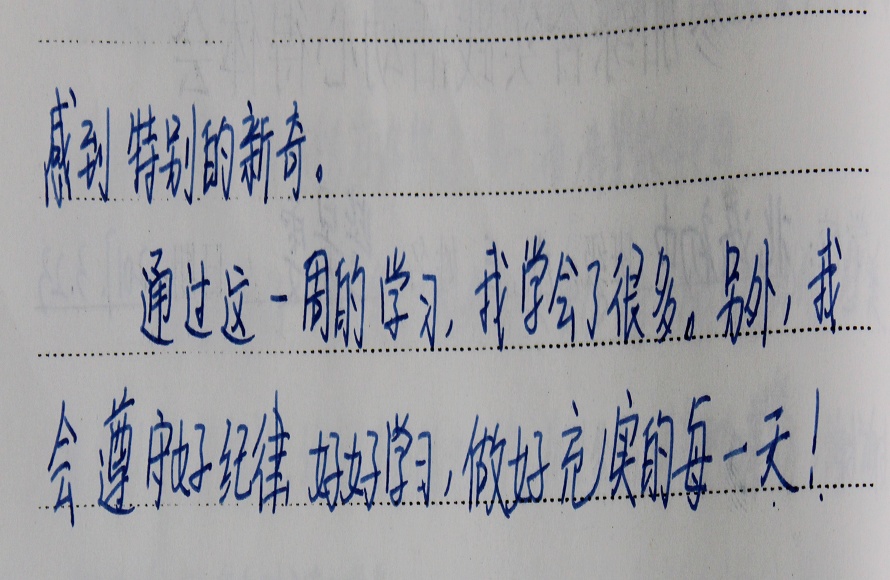 感到特别的新奇。
通过这一周的学习,我学会了很多。另外,我
会遵守好纪律 好好学习,做好充实的每一天!